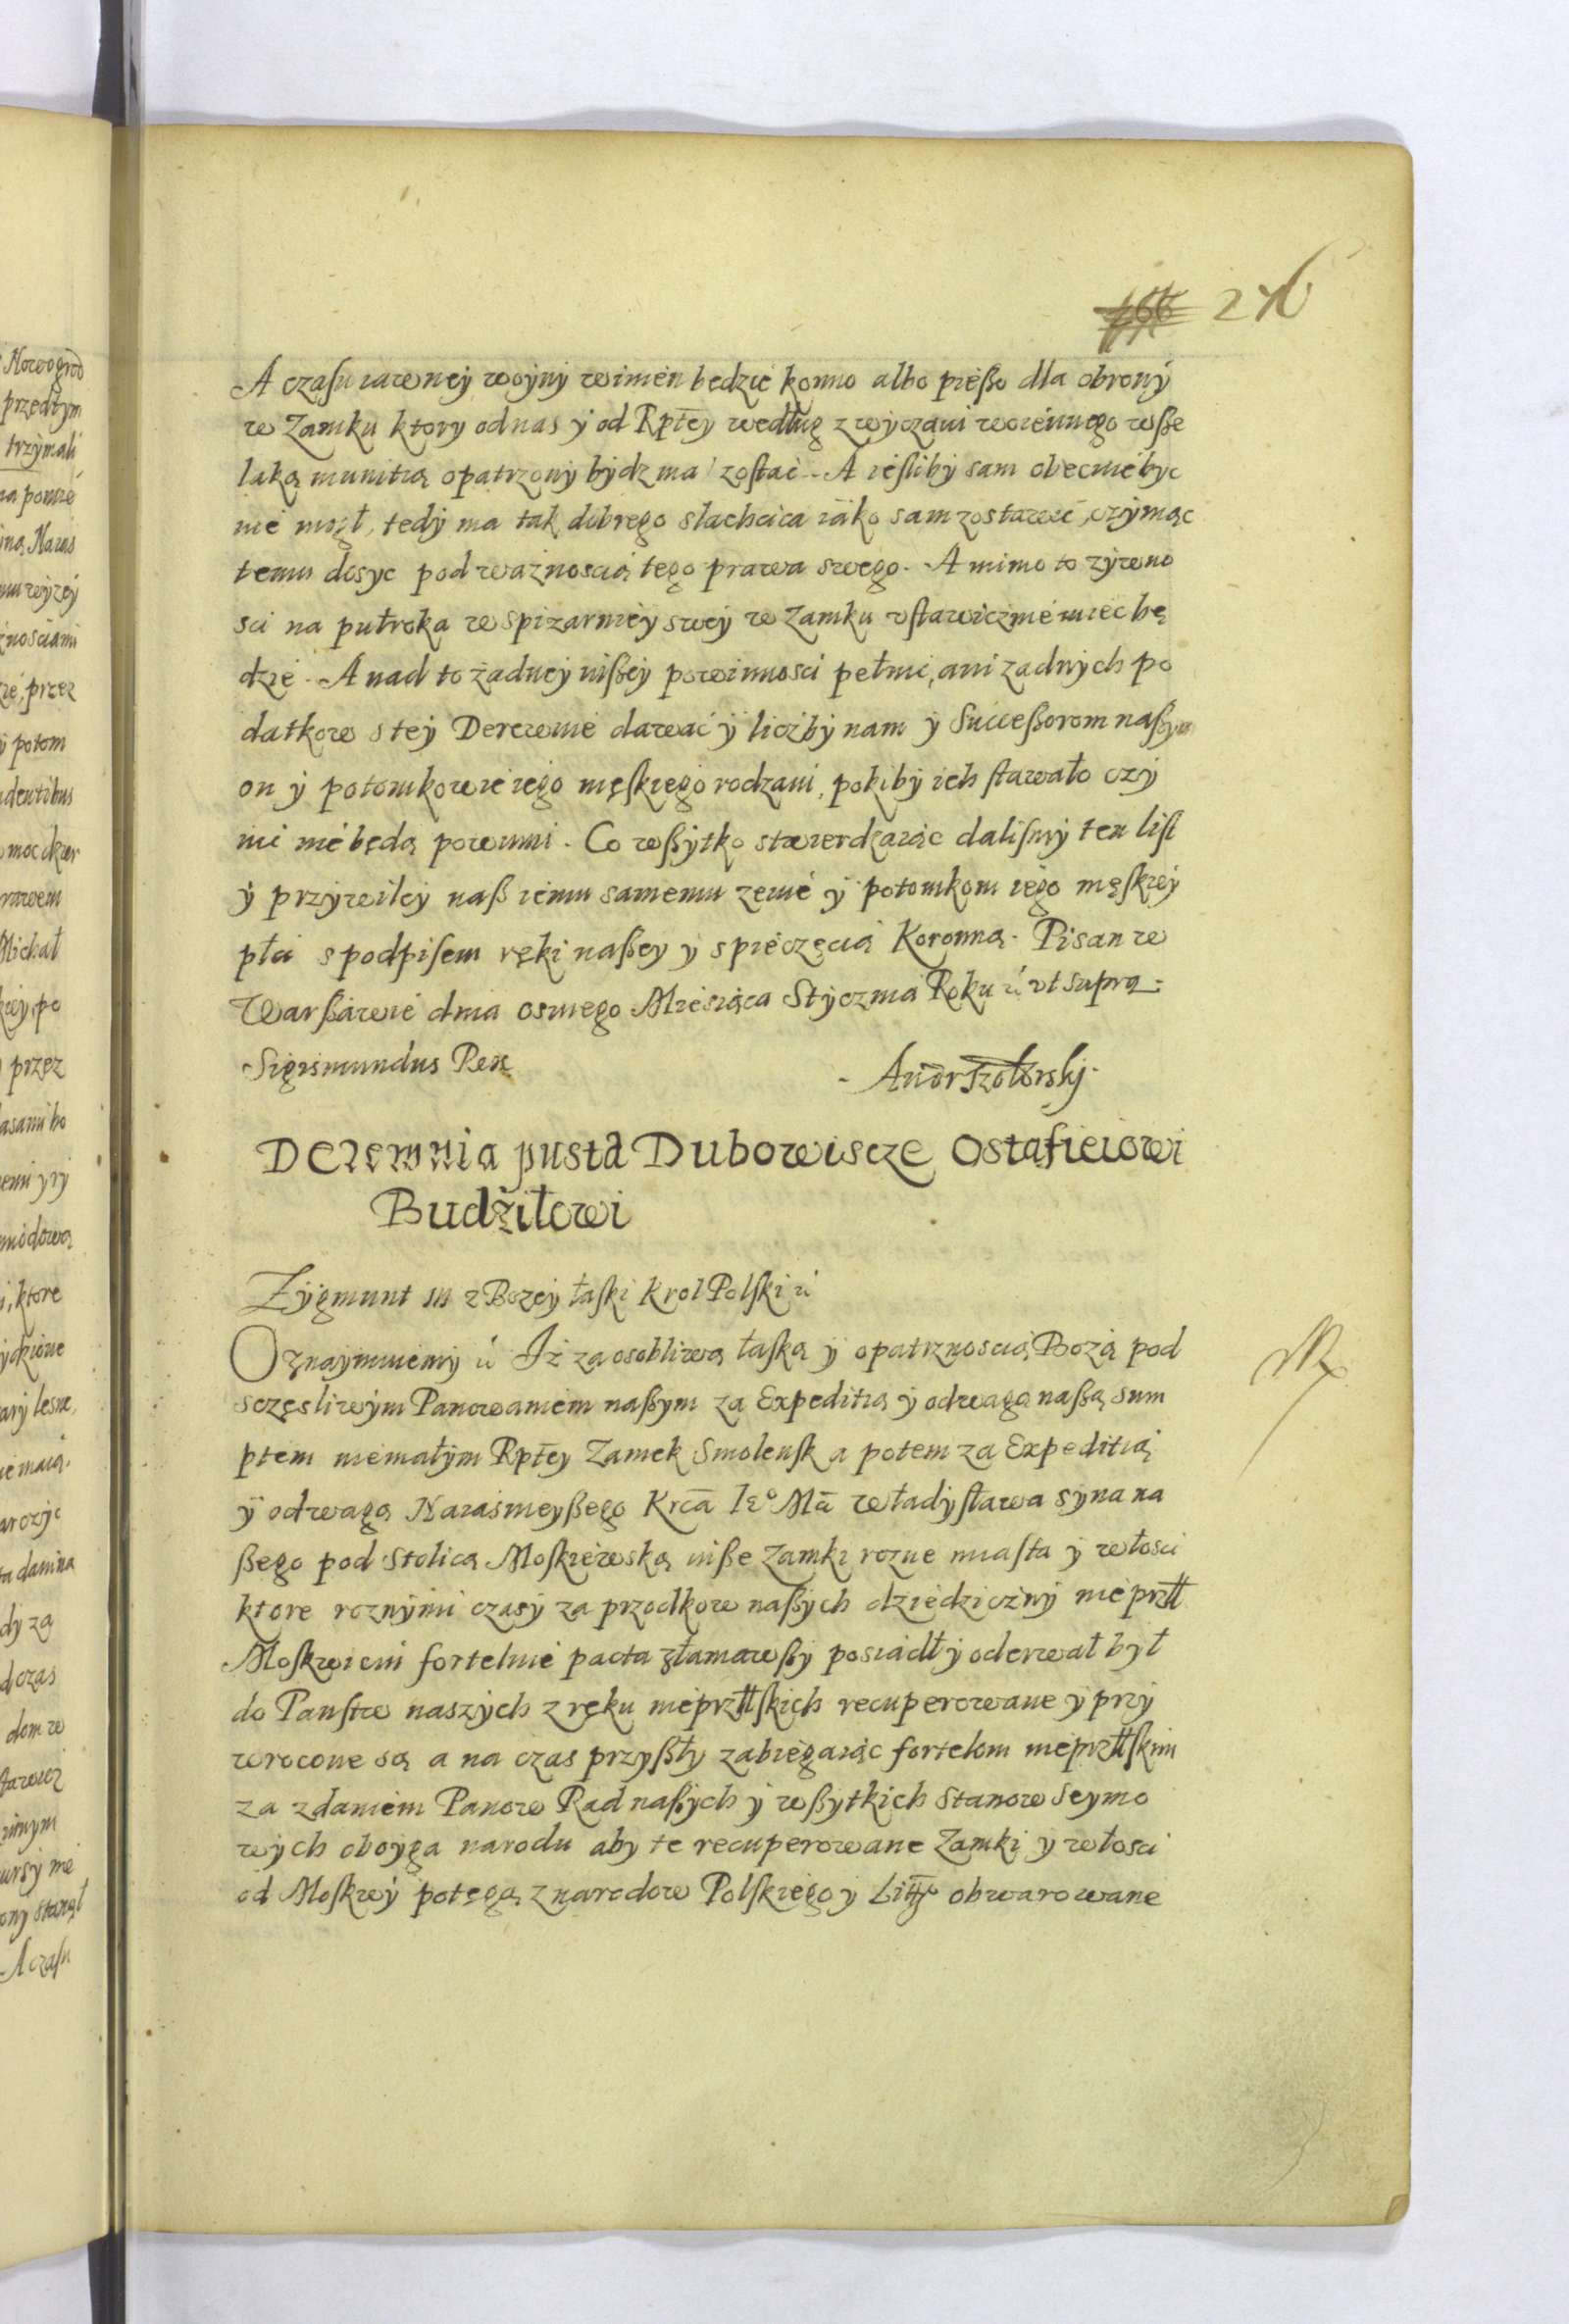 276
A czasu iawney woyny winien będzie konno albo pießo dla obrony
w Zamku ktory od nas y od Rptey według zwyczaiu woiennego wsße
laką munitią opatrzony bydz ma zostać. A iesliby sam obecnie byc
nie mogł, tedy ma tak dobrego slachcica iako sam zostawić, czyniąc
temu dosyc pod ważnoscią tego prawa swego. A mimo to zywno
sci na pułroka w spizarniey swey w Zamku vstawicznie miec bę
dzie. A nad to żadney inßey powinnosci pełnić, ani zadnych po
datkow s tey Derewnie dawać y liczby nam y Successorom naßym
on y potomkowie iego męskiego rodzaiu, pokiby ich stawało czy
nić nie będą powinni. Co wßytko stwierdzaiąc dalismy ten list
y przywiley naß iemu samemu żenie y potomkom iego męskiey
płci s podpisem ręki naßey y s pieczęcią Koronną. Pisan w
Warßawie dnia osmego Miesiąca Stycznia Roku ut supra.
Sigismundus Rex
Derewnia pusta Dubowiscze Ostafieiowi
Budziłowi
Zygmunt III z Bozey łaski Krol Polski
Oznaymuiemy Iż za osobliwą łaską y opatrznoscią Bozą pod
sczęsliwym Panowaniem naßym za Expeditią y odwagą naßą sum
ptem niemałym Rptey Zamek Smolensk a potem za Expeditią
y odwagą Naiasnieyßego Krca Ieo Ma Władysława syna na
ßego pod Stolicą Moskiewską inße Zamki rozne miasta y włosci
ktore roznymi czasy za przodkow naßych dziedziczny nieprzll
Moskwicin fortelnie pacta złamawßy posiadł y oderwał był
do Panstw naszych z ręku nieprzllskich recuperowane y przy
wrocone są a na czas przyßły zabiegaiąc fortelom nieprzllskim
za zdaniem Panow Rad naßych y wßytkich Stanow Seymo
wych oboyga narodu aby te recuperowane Zamki y włosci
od Moskwy potęgą z narodow Polskiego y Litt° obwarowane